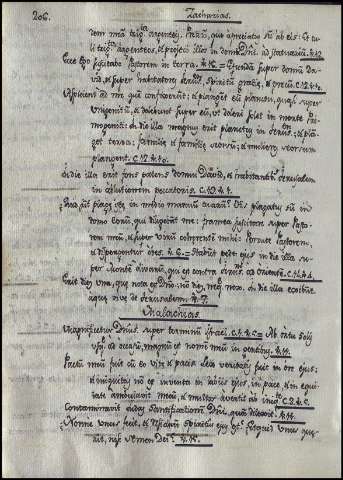 206. Zacharias.
dem meā triginta argenteis. Pretiū, quo apreciatus sū ab eis. Et tu
li triginta argenteos, et projeci illos in domū Dñi ad statuariū.
Ecce ego suscitabo Pastorem in terra. Effundā super domū Da
vid, et super habitatores Jerusalē Spiritū gratiæ, et precū. C. 12.
Aspicient ad me quē confixerūt: et plangēt eū planctu, quasi super
unigenitū, et dolebunt super eū, ut doleri solet in morte Pri
mogeniti. in die illa magnus erit planctus in Jerus. et plā
get terra: familiæ et familiæ seorsū: et mulieres eorum
plangent. C. 12.
in die illa erit fons patens domui David, et habitantibus Jerusalem
in ablutionem peccatoris. C. 13.
in medio manuū tuarū? His plagatus sū in
domo eorū, qui diligebāt me: framea suscitare super Pas
torem meū, et super virum coherentē mihi: Percute Pastorem,
et dispergentur oves. Stabūt pedes ejus in die illa su
per Montē olivarū, qui est contra Jerus. ad Orientē. C. 14.
Erit dies una, quæ nota est Dño: nō dies, neq. nox. in die illa exibūt
aquæ vivæ de Jerusalem.
Malachias.
Magnificetur Dñus super terminū Israel. C. 1. Ab ortu Solis
usq. ad occasū, magnū est nomē meū in gentibus.
Pactū meū fuit cū eo vitæ et pacis. Lex veritatis fuit in ore ejus:
et iniquitas nō est inventa in labiis ejus, in pace, et in equi
tate ambulavit mecū, et multos avertit ab iniqte. C. 2.
Contaminavit Judas Sanctificationem Dñi, quā dilexit.
Nonne unus fecit, et residuum Spiritus ejus est? Et quid unus quæ
rit, nisi Semen Dei?